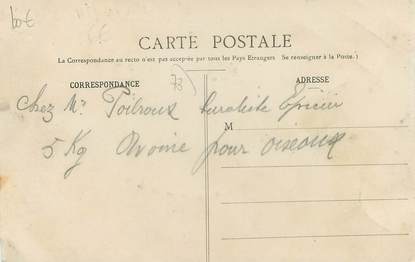 bot
CARTE POSTALE
(La Correspondance au recto n'est pas acceptée par tous les Pays Etrangers Se renseigner à la Poste.)
CORRESPONDANCE
73
ADRESSE
Chez Mr Toilroux buraliste Epicier
M
5 Kg Avoine pour oiseaux